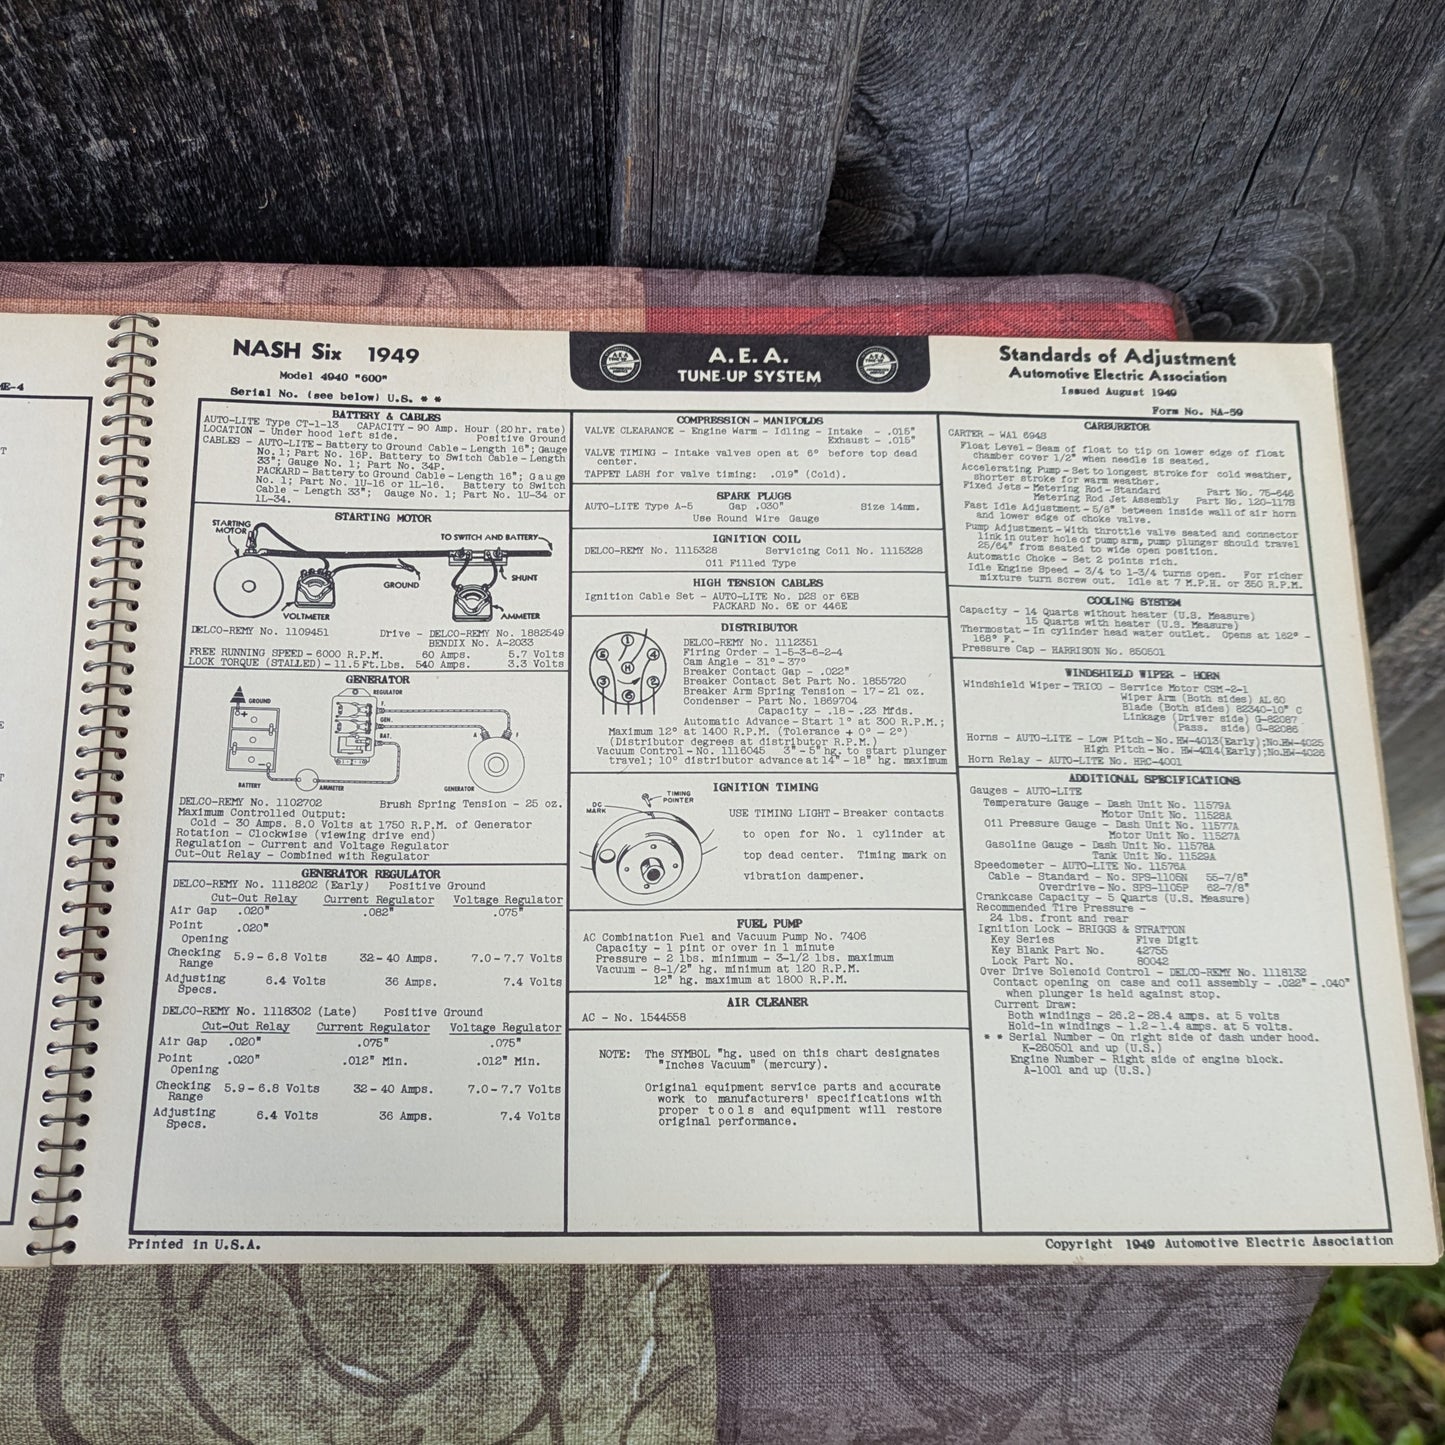 NASH Six 1949
Model 4940 "600"
Serial No. (see below) U.S. * *
A.E.A.
TUNE-UP SYSTEM
Standards of Adjustment
Automotive Electric Association
Issued August 1949
Form No. NA-59
BATTERY & CABLES
AUTO-LITE Type CT-1-13 CAPACITY - 90 Amp. Hour (20 hr. rate)
LOCATION - Under hood left side. Positive Ground
CABLES - AUTO-LITE - Battery to Ground Cable - Length 16"; Gauge
No. 1; Part No. 16P. Battery to Switch Cable - Length
33"; Gauge No. 1; Part No. 34P.
PACKARD - Battery to Ground Cable - Length 16"; Gauge
No. 1; Part No. 1U-16 or 1L-16. Battery to Switch
Cable - Length 33"; Gauge No. 1; Part No. 1U-34 or
1L-34.
STARTING MOTOR
STARTING
MOTOR
TO SWITCH AND BATTERY
GROUND
SHUNT
VOLTMETER
AMMETER
DELCO-REMY No. 1109451 Drive - DELCO-REMY No. 1882549
BENDIX No. A-2033
FREE RUNNING SPEED - 6000 R.P.M. 60 Amps. 5.7 Volts
LOCK TORQUE (STALLED) - 11.5 Ft. Lbs. 540 Amps. 3.3 Volts
GENERATOR
GROUND
REGULATOR
F.
GEN.
BAT.
A
F
BATTERY
AMMETER
GENERATOR
DELCO-REMY No. 1102702 Brush Spring Tension - 25 oz.
Maximum Controlled Output:
Cold - 30 Amps. 8.0 Volts at 1750 R.P.M. of Generator
Rotation - Clockwise (viewing drive end)
Regulation - Current and Voltage Regulator
Cut-Out Relay - Combined with Regulator
GENERATOR REGULATOR
DELCO-REMY No. 1118202 (Early) Positive Ground
Cut-Out Relay Current Regulator Voltage Regulator
Air Gap .020" .082" .075"
Point
Opening .020"
Checking
Range 5.9 - 6.8 Volts 32-40 Amps. 7.0 - 7.7 Volts
Adjusting
Specs. 6.4 Volts 36 Amps. 7.4 Volts
DELCO-REMY No. 1118302 (Late) Positive Ground
Cut-Out Relay Current Regulator Voltage Regulator
Air Gap .020" .075" .075"
Point
Opening .020" .012" Min. .012" Min.
Checking
Range 5.9 - 6.8 Volts 32-40 Amps. 7.0 - 7.7 Volts
Adjusting
Specs. 6.4 Volts 36 Amps. 7.4 Volts
COMPRESSION - MANIFOLDS
VALVE CLEARANCE - Engine Warm - Idling - Intake - .015"
Exhaust - .015"
VALVE TIMING - Intake valves open at 6° before top dead
center.
TAPPET LASH for valve timing: .019" (Cold).
SPARK PLUGS
AUTO-LITE Type A-5 Gap .030" Size 14mm.
Use Round Wire Gauge
IGNITION COIL
DELCO-REMY No. 1115328 Servicing Coil No. 1115328
Oil Filled Type
HIGH TENSION CABLES
Ignition Cable Set - AUTO-LITE No. D2S or 6EB
PACKARD No. 6E or 446E
DISTRIBUTOR
DELCO-REMY No. 1112351
Firing Order - 1-5-3-6-2-4
Cam Angle - 31° - 37°
Breaker Contact Gap - .022"
Breaker Contact Set Part No. 1855720
Breaker Arm Spring Tension - 17-21 oz.
Condenser - Part No. 1869704
Capacity - .18 - .23 Mfds.
Automatic Advance - Start 1° at 300 R.P.M.;
Maximum 12° at 1400 R.P.M. (Tolerance + 0° - 2°)
(Distributor degrees at distributor R.P.M.)
Vacuum Control - No. 1116045 3" - 5" hg. to start plunger
travel; 10° distributor advance at 14" - 18" hg. maximum
IGNITION TIMING
DC
MARK
TIMING
POINTER
USE TIMING LIGHT - Breaker contacts
to open for No. 1 cylinder at
top dead center. Timing mark on
vibration dampener.
FUEL PUMP
AC Combination Fuel and Vacuum Pump No. 7406
Capacity - 1 pint or over in 1 minute
Pressure - 2 lbs. minimum - 3-1/2 lbs. maximum
Vacuum - 8-1/2" hg. minimum at 120 R.P.M.
12" hg. maximum at 1800 R.P.M.
AIR CLEANER
AC - No. 1544558
NOTE: The SYMBOL "hg. used on this chart designates
"Inches Vacuum" (mercury).
Original equipment service parts and accurate
work to manufacturers' specifications with
proper tools and equipment will restore
original performance.
CARBURETOR
CARTER - WA1 694S
Float Level - Seam of float to tip on lower edge of float
chamber cover 1/2" when needle is seated.
Accelerating Pump - Set to longest stroke for cold weather,
shorter stroke for warm weather.
Fixed Jets - Metering Rod - Standard Part No. 75-646
Metering Rod Jet Assembly Part No. 120-117S
Fast Idle Adjustment - 5/8" between inside wall of air horn
and lower edge of choke valve.
Pump Adjustment - With throttle valve seated and connector
link in outer hole of pump arm, pump plunger should travel
25/64" from seated to wide open position.
Automatic Choke - Set 2 points rich.
Idle Engine Speed - 3/4 to 1-3/4 turns open. For richer
mixture turn screw out. Idle at 7 M.P.H. or 350 R.P.M.
COOLING SYSTEM
Capacity - 14 Quarts without heater (U.S. Measure)
15 Quarts with heater (U.S. Measure)
Thermostat - In cylinder head water outlet. Opens at 162° -
168° F.
Pressure Cap - HARRISON No. 850501
WINDSHIELD WIPER - HORN
Windshield Wiper - TRICO - Service Motor CSM-2-1
Wiper Arm (Both sides) AL 60
Blade (Both sides) 82340-10" C
Linkage (Driver side) G-82087
(Pass. side) G-82086
Horns - AUTO-LITE - Low Pitch - No. HW-4013(Early); No. HW-4025
High Pitch - No. HW-4014(Early); No. HW-4026
Horn Relay - AUTO-LITE No. HRC-4001
ADDITIONAL SPECIFICATIONS
Gauges - AUTO-LITE
Temperature Gauge - Dash Unit No. 11579A
Motor Unit No. 11528A
Oil Pressure Gauge - Dash Unit No. 11577A
Motor Unit No. 11527A
Gasoline Gauge - Dash Unit No. 11578A
Tank Unit No. 11529A
Speedometer - AUTO-LITE No. 11576A
Cable - Standard - No. SPS-1105N 55-7/8"
Overdrive - No. SPS-1105P 62-7/8"
Crankcase Capacity - 5 Quarts (U.S. Measure)
Recommended Tire Pressure -
24 lbs. front and rear
Ignition Lock - BRIGGS & STRATTON
Key Series Five Digit
Key Blank Part No. 42755
Lock Part No. 80042
Over Drive Solenoid Control - DELCO-REMY No. 1118132
Contact opening on case and coil assembly - .022" - .040"
when plunger is held against stop.
Current Draw:
Both windings - 26.2 - 28.4 amps. at 5 volts
Hold-in windings - 1.2 - 1.4 amps. at 5 volts.
* * Serial Number - On right side of dash under hood.
K-260501 and up (U.S.)
Engine Number - Right side of engine block.
A-1001 and up (U.S.)
Printed in U.S.A.
Copyright 1949 Automotive Electric Association